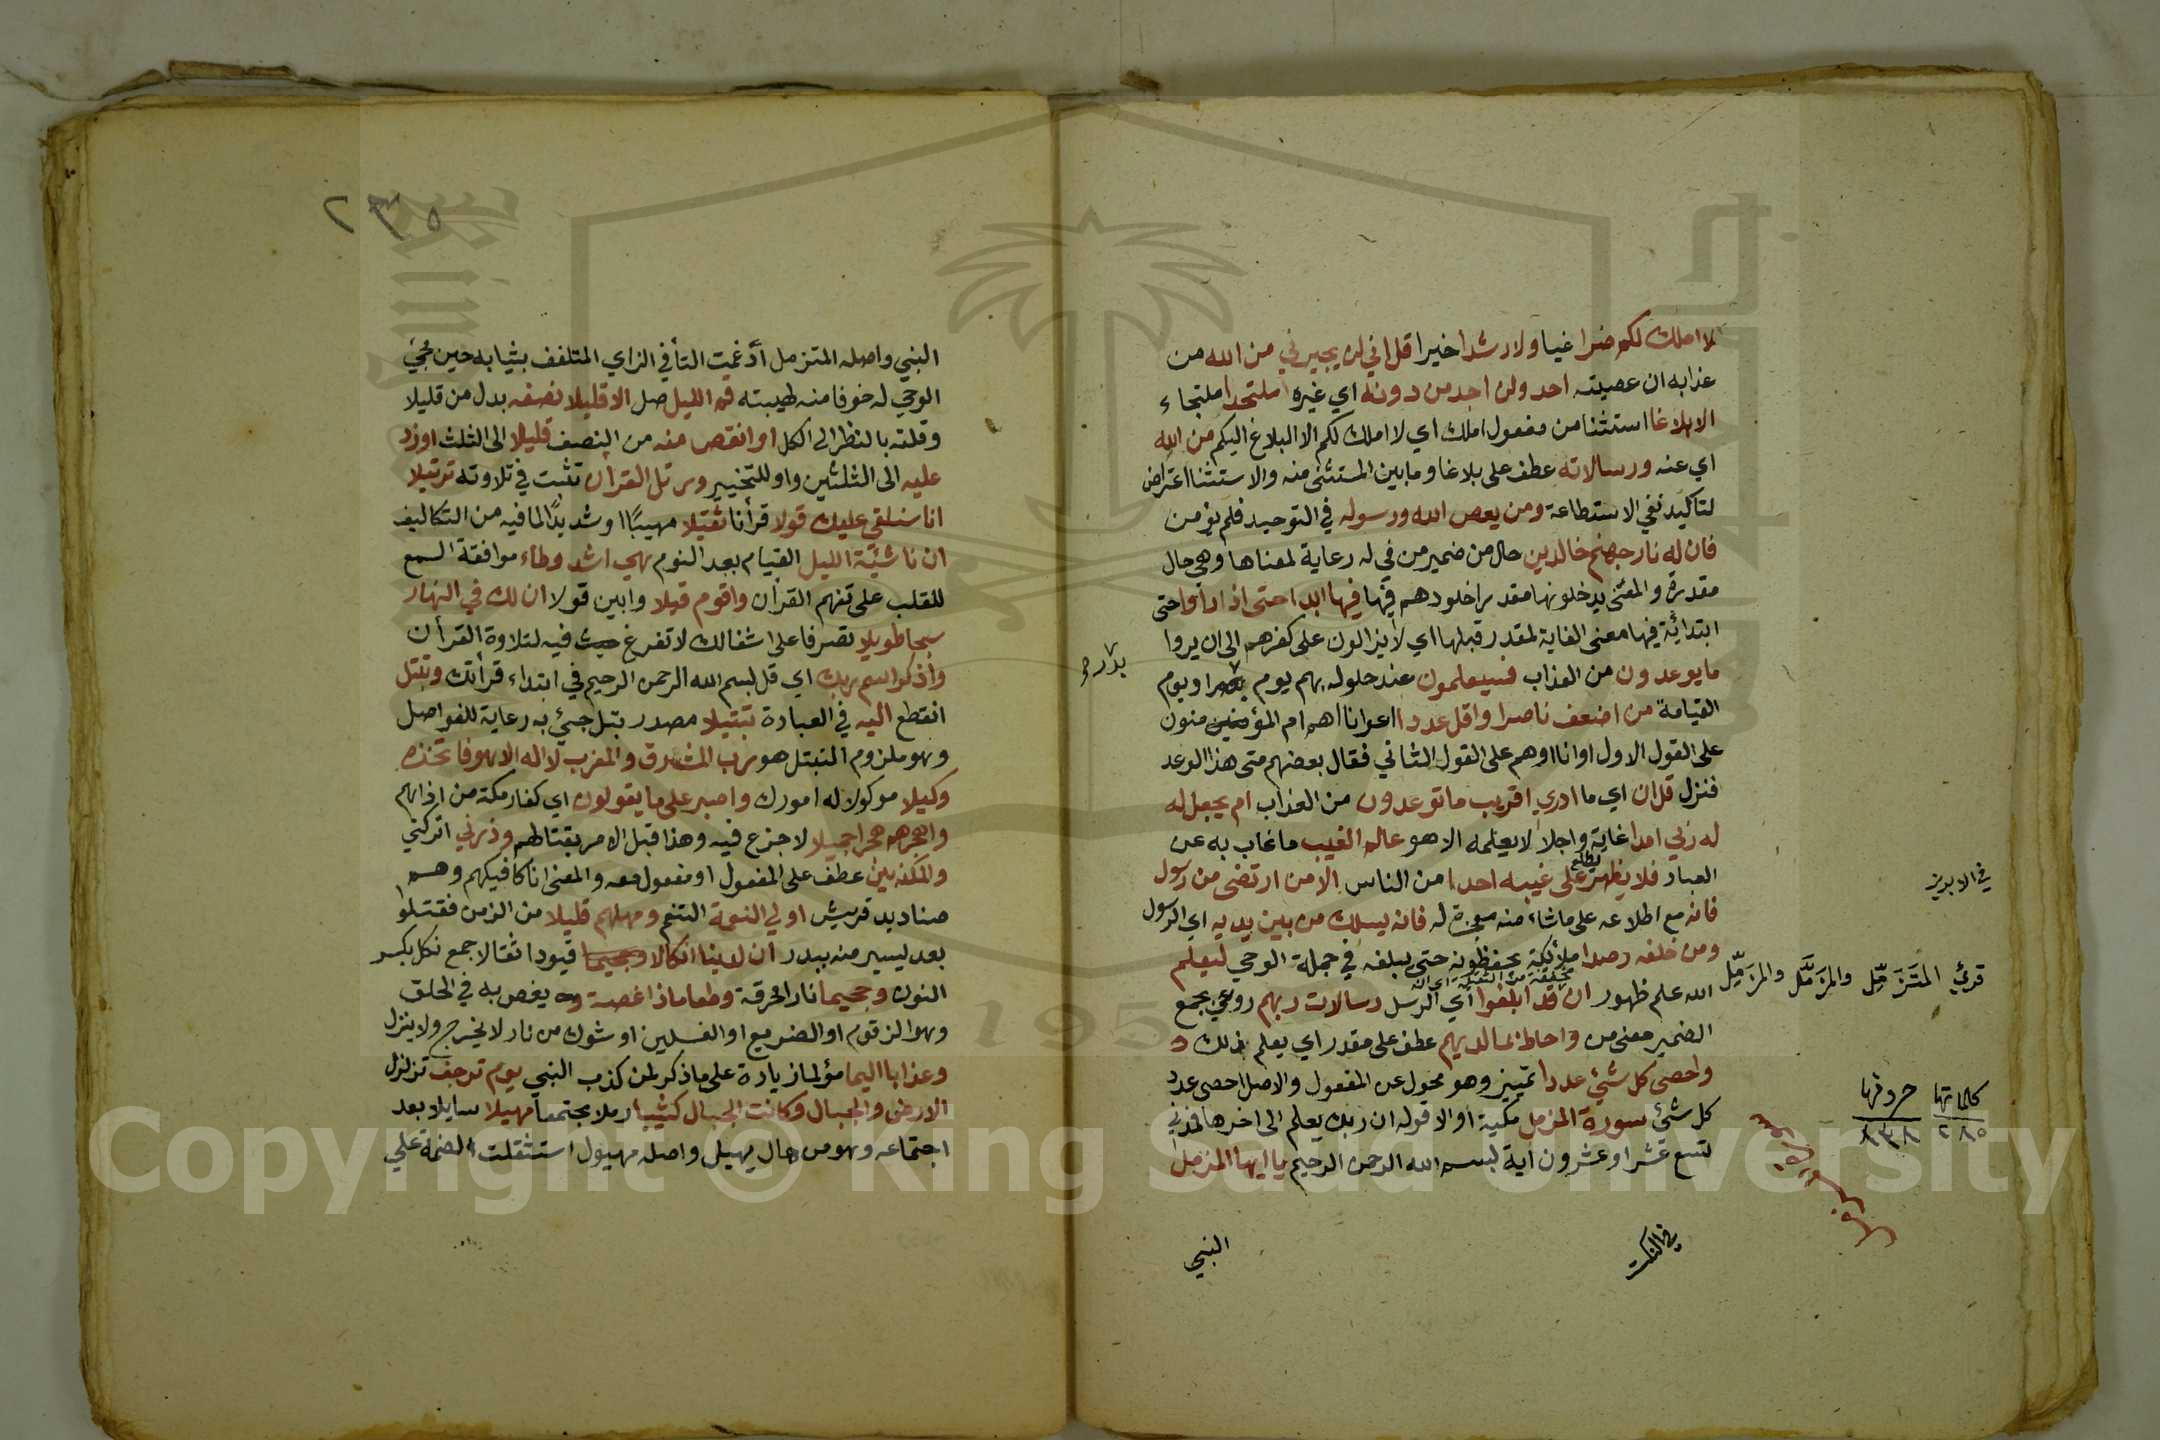 لا املك لكم ضرا غيا ولا رشدا خيرا قل اني لن يجيرني من الله من
عذابه ان عصيته احد ولن اجد من دونه اي غيره ملتحدا ملتجاء
الا بلاغا استثنا من مفعول املك اي لا املك لكم الا البلاغ اليكم من الله
اي عنه ورسالاته عطف على بلاغا وما بين المستثنى منه والاستثنا اعتراض
لتاكيد نفي الاستطاعة ومن يعص الله ورسوله في التوحيد فلم يؤمن
فان له نار جهنم خالدين حال من ضمير من في له رعاية لمعناها وهي حال
مقدرة والمعنى يدخلونها مقدرا خلودهم فيها فيها ابدا حتى اذا راوا حتى
ابتدائية فيها معنى الغاية لمقدر قبلها اي لا يزالون على كفرهم الى ان يروا
ما يوعدون من العذاب فسيعلمون عند حلوله بهم يوم بدر او يوم
بدر صح
القيامة من اضعف ناصرا واقل عددا اعوانا اهم ام المؤمنون
على القول الاول او انا او هم على القول الثاني فقال بعضهم متى هذا الوعد
فنزل قل ان اي ما ادري اقريب ما توعدون من العذاب ام يجعل له
له ربي امدا غاية واجلا لا يعلمه الا هو عالم الغيب ما غاب به عن
العباد فلا يظهر يطلع على غيبه احدا من الناس الا من ارتضى من رسول
في الابريز
فانه مع اطلاعه على ماشاء منه معجزة له فانه يسلك من بين يديه اي الرسول
ومن خلفه رصدا ملائكة يحفظونه حتى يبلغه في جملة الوحي ليعلم
قرئ المتزمل والمزمل والمزمل
مخففة من الثقيلة اي انه
الله علم ظهور ان قد ابلغوا اي الرسل رسالات ربهم روعي بجمع
الضمير معنى من واحاط بما لديهم عطف على مقدر اي يعلم ذلك و
واحصى كل شئ عددا تمييز وهو محول عن المفعول والاصل احصى عدد
كل شئ سورة المزمل مكية او الا قوله ان ربك يعلم الى اخرها فمدني
كلماتها حروفها
٢٨٥ ٨٣٨
تسع عشر او عشرون اية بسم الله الرحمن الرحيم يا ايها المزمل
النبي
في النكت
٢٣٥
النبي واصله المتزمل أدغمت التأ في الزاي المتلفف بثيابه حين مجئ
الوحي له خوفا منه لهيبته قم الليل صل الا قليلا نصفه بدل من قليلا
وقلته بالنظر الى الكل او انقص منه من النصف قليلا الى الثلث او زد
عليه الى الثلثين واو للتخيير ورتل القران تثبت في تلاوته ترتيلا
انا سنلقي عليك قولا قرأنا ثقيلا مهيبا او شديدا لما فيه من التكاليف
ان ناشئة الليل القيام بعد النوم هي اشد وطاء موافقة السمع
للقلب على تفهم القران واقوم قيلا وابين قولا ان لك في النهار
سبحا طويلا تصرفا على اشغالك لا تفرغ حيث فيه لتلاوة القرأن
واذكر اسم ربك اي قل بسم الله الرحمن الرحيم في ابتداء قرأتك وتبتل
انقطع اليه في العبادة تبتيلا مصدر بتل جيئ به رعاية للفواصل
وهو ملزوم التبتل هو رب المشرق والمغرب لا اله الا هو فاتخذه
وكيلا موكولا له امورك واصبر على ما يقولون اي كفار مكة من اذاهم
واهجرهم هجرا جميلا لا جزع فيه وهذا قبل الامر بقتالهم وذرني اتركني
والمكذبين عطف على المفعول او مفعول معه والمعنى انا كافيكهم وهم
صناديد قريش اولي النعمة التنعم ومهلهم قليلا من الزمن فقتلوا
بعد يسير منه ببدر ان لدينا انكالا وجحيما قيودا ثقالا جمع نكل بكسر
النون وجحيما نارا محرقة وطعاما ذا غصة يغص به في الحلق
وهو الزقوم او الضريع او الغسلين او شوك من نار لا يخرج ولا ينزل
وعذابا اليما مؤلما زيادة على ما ذكر لمن كذب النبي يوم ترجف تزلزل
الارض والجبال وكانت الجبال كثيبا رملا مجتمعا مهيلا سايلا بعد
اجتماعه وهو من هال يهيل واصله مهيول استثقلت الضمة على
Copyright © King Saud University